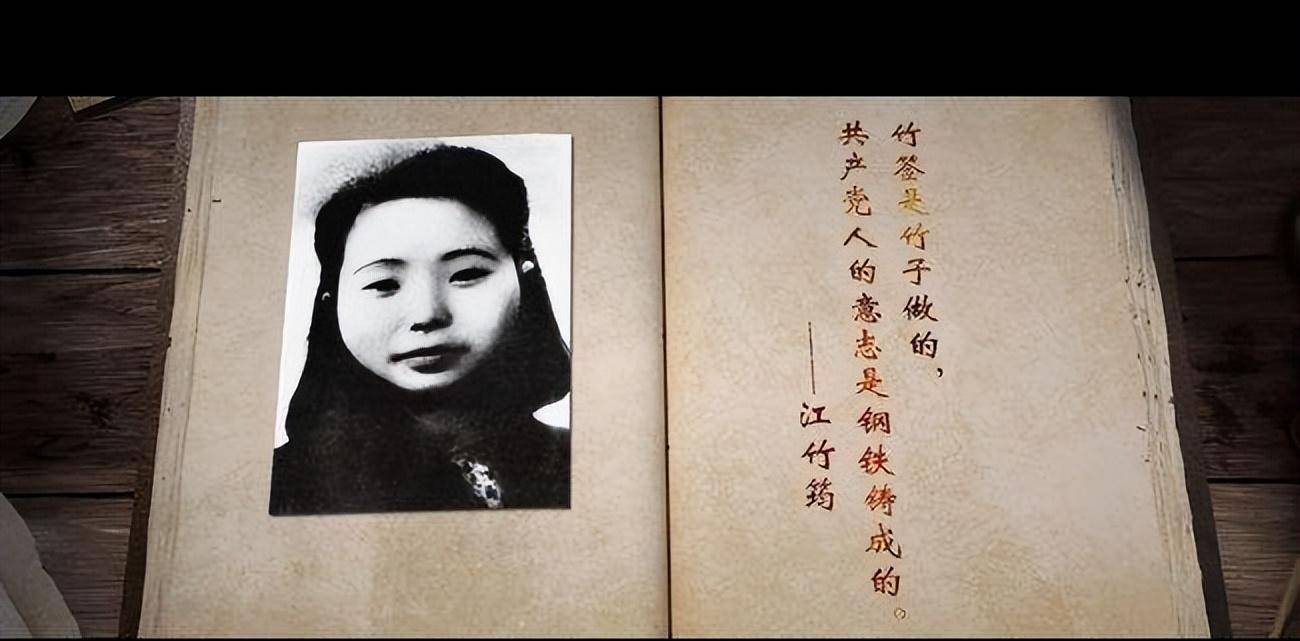 竹签是竹子做的，
共产党人的意志是钢铁铸成的。
——江竹筠